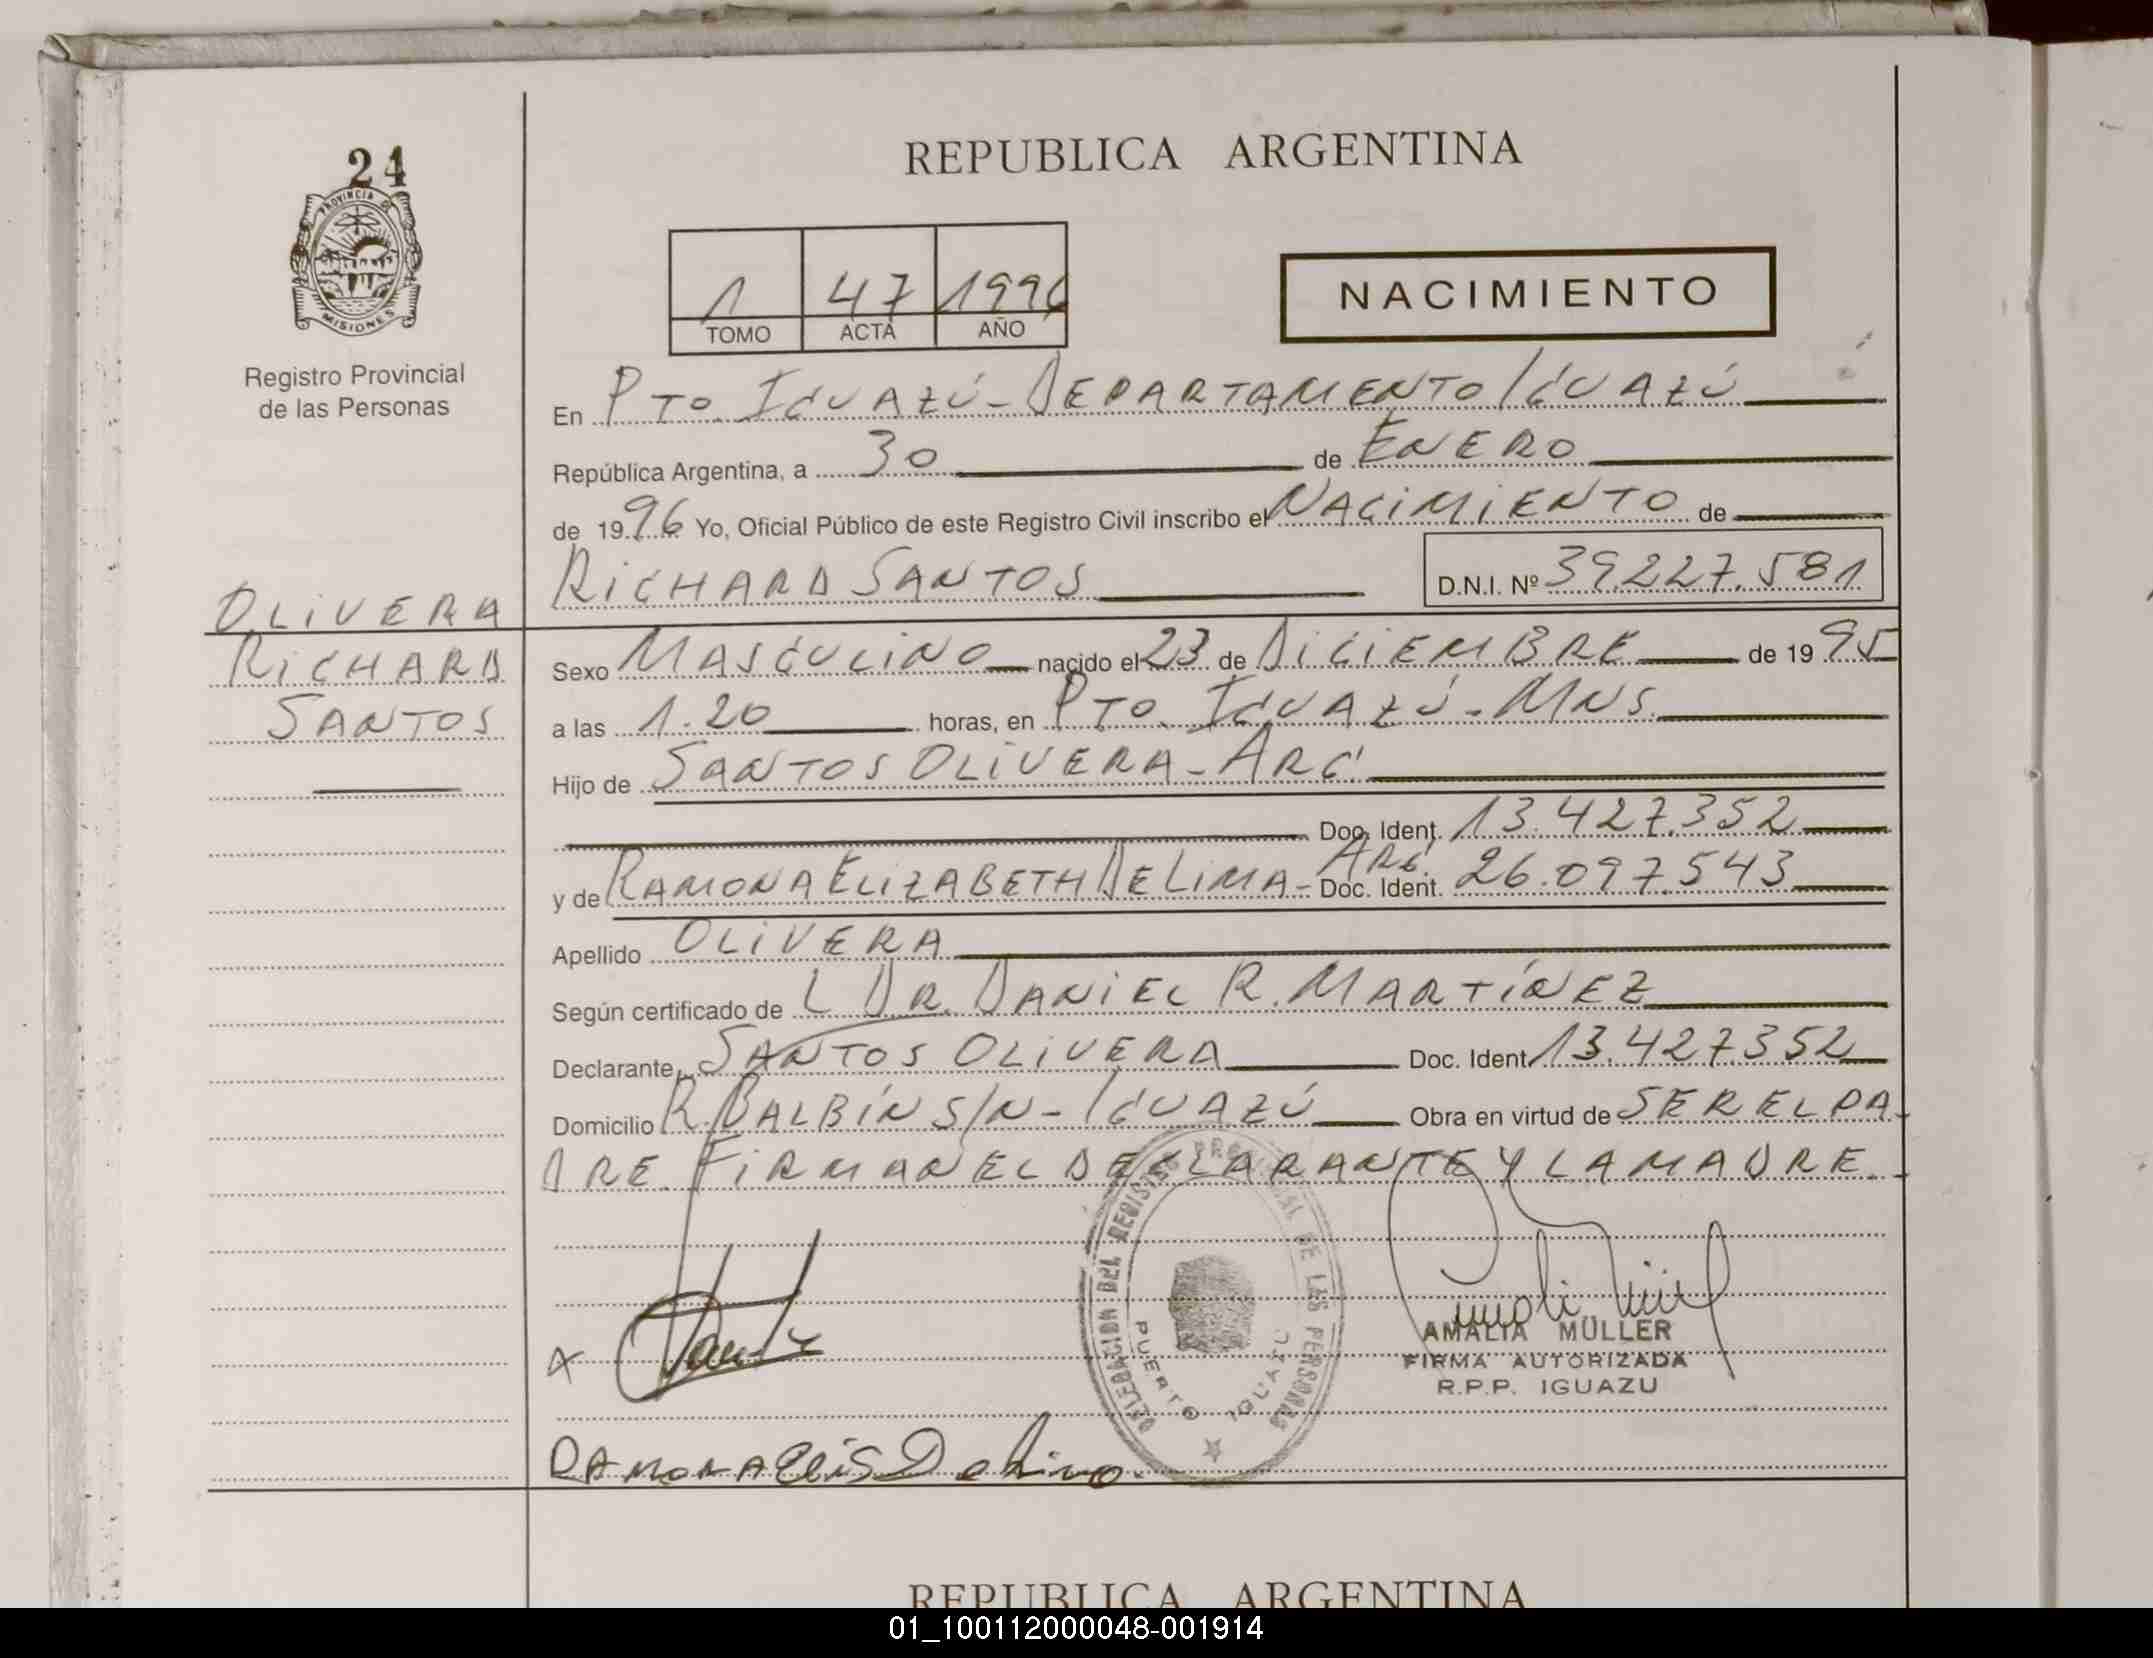 24
PROVINCIA DE
MISIONES
Registro Provincial
de las Personas
OLIVERA
RICHARD
SANTOS
REPUBLICA ARGENTINA
1 47 1996
TOMO ACTA AÑO
NACIMIENTO
En PTO. IGUAZÚ - DEPARTAMENTO IGUAZÚ
República Argentina, a 30 de ENERO
de 1996 Yo, Oficial Público de este Registro Civil inscribo el NACIMIENTO de
RICHARD SANTOS D.N.I. Nº 39.227.581
Sexo MASCULINO nacido el 23 de DICIEMBRE de 1995
a las 1.20 horas, en PTO. IGUAZÚ - MNS.
Hijo de SANTOS OLIVERA - ARG.
Doc. Ident. 13.427.352
y de RAMONA ELIZABETH DE LIMA - ARG. Doc. Ident. 26.097.543
Apellido OLIVERA
Según certificado de L DR. DANIEL R. MARTÍNEZ
Declarante SANTOS OLIVERA Doc. Ident. 13.427.352
Domicilio R. BALBÍN S/N - IGUAZÚ Obra en virtud de SER EL PA-
DRE. FIRMAN EL DECLARANTE Y LA MADRE.
DELEGACION DEL REGISTRO PROVINCIAL DE LAS PERSONAS
PUERTO IGUAZU
AMALIA MÜLLER
FIRMA AUTORIZADA
R.P.P. IGUAZU
X
RAMONA De Lima
REPUBLICA ARGENTINA
01_100112000048-001914